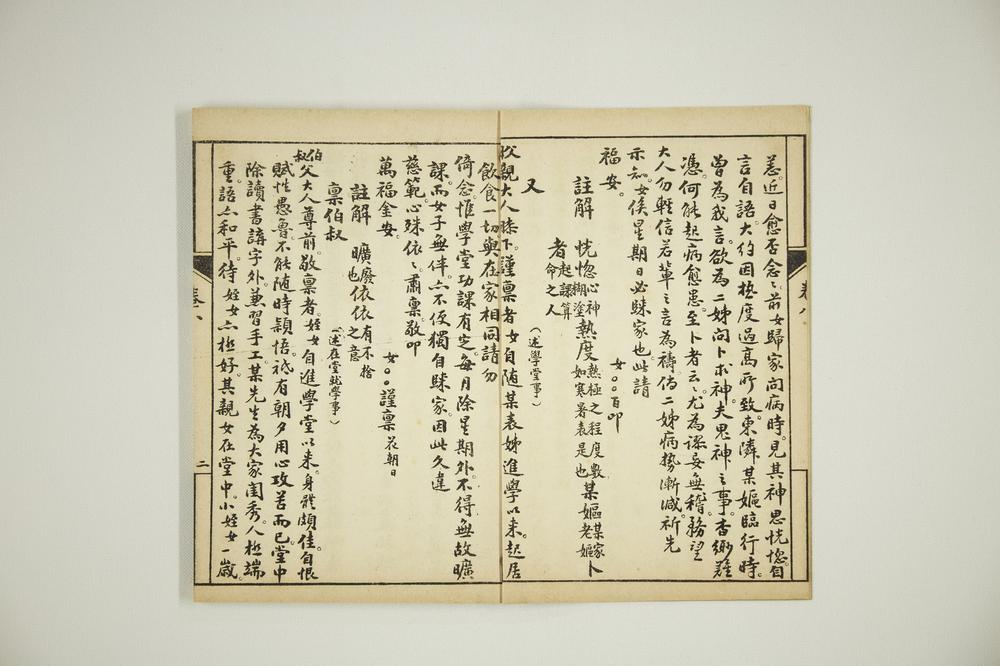 恙。近日愈否。念〻。前女歸家问病時。見其神思恍惚。自
言自語。大约因热度過高所致。東隣某嫗臨行時。
曾為我言。欲為二姊问卜求神。夫鬼神之事。杳渺難
憑。何能起病愈患。至卜者云〻。尤為謬妄無稽。務望
大人勿輕信若輩之言為禱。倘二姊病勢漸減。祈先
示知。女俟星期日必歸家也。此請
福安。 女〇〇百叩
註解 恍惚心神糊塗 熱度熱極之程度數如寒暑表是也 某嫗某家老嫗 卜
者起課算命之人
又 （述學堂事）
父親大人膝下。謹禀者。女自随某表姊進學以来。起居
飲食。一切與在家相同。請勿
倚念。惟學堂功課有定。每月除星期外。不得無故曠
課。而女子無伴。亦不便獨自歸家。因此久違
慈範。心殊依〻。肅禀。敬叩
萬福金安。 女〇〇謹禀 花朝日
註解 曠廢也 依依有不捨之意
禀伯叔 （述在堂就學事）
伯叔父大人尊前。敬禀者。姪女自進學堂以来。身體頗佳。自恨
賦性愚魯。不能随時穎悟。祗有朝夕用心攻苦而已。堂中
除讀書講字外。兼習手工。某先生為大家闺秀。人極端
重。語亦和平。待姪女亦極好。其親女在堂中。小姪女一歲。
卷八
卷八
二